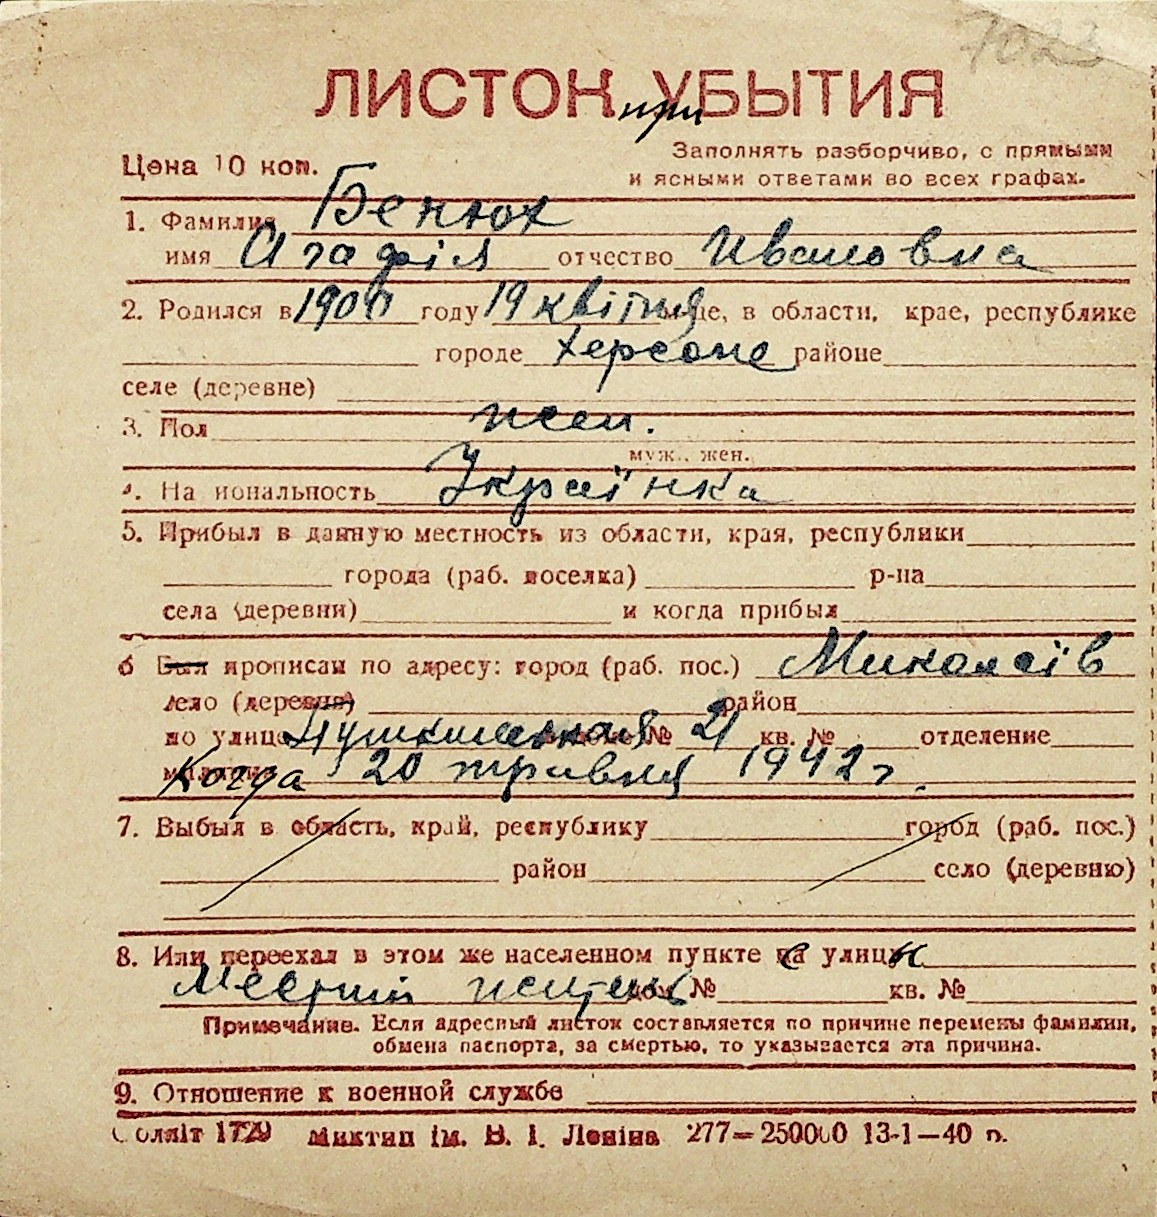 7023
ЛИСТОК при УБЫТИЯ
Цена 10 коп.
Заполнять разборчиво, с прямыми
и ясными ответами во всех графах.
1. Фамилия Бенюх
имя Агафія отчество Ивановна
2. Родился в 1900 году 19 квітня це, в области, крае, республике
городе Херсоне районе
селе (деревне)
3. Пол жен.
муж., жен.
4. На иональность Українка
5. Прибыл в данную местность из области, края, республики
города (раб. поселка) р-на
села (деревни) и когда прибыл
6 Был прописан по адресу: город (раб. пос.) Миколаїв
село (деревня) район
по улице Пушкинская № 21 кв. № отделение
Когда 20 травня 1942 г.
7. Выбыл в область, край, республику город (раб. пос.)
район село (деревню)
8. Или переехал в этом же населенном пункте с улицы
Місцевий житель дом № кв. №
Примечание. Если адресный листок составляется по причине перемены фамилии,
обмена паспорта, за смертью, то указывается эта причина.
9. Отношение к военной службе
Облліт 1729 Миктип ім. В. І. Леніна 277—250000 13-1—40 р.